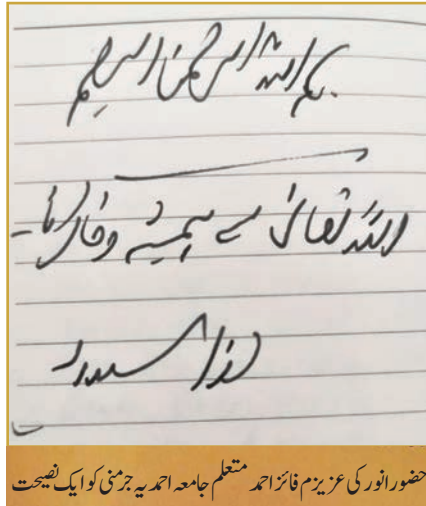 بسم اللہ الرحمن الرحیم
اللہ تعالیٰ سے ہمیشہ وفا کرنا۔
مرزا مسرور
حضور انور کی عزیزم فائز احمد متعلم جامعہ احمدیہ جرمنی کو ایک نصیحت